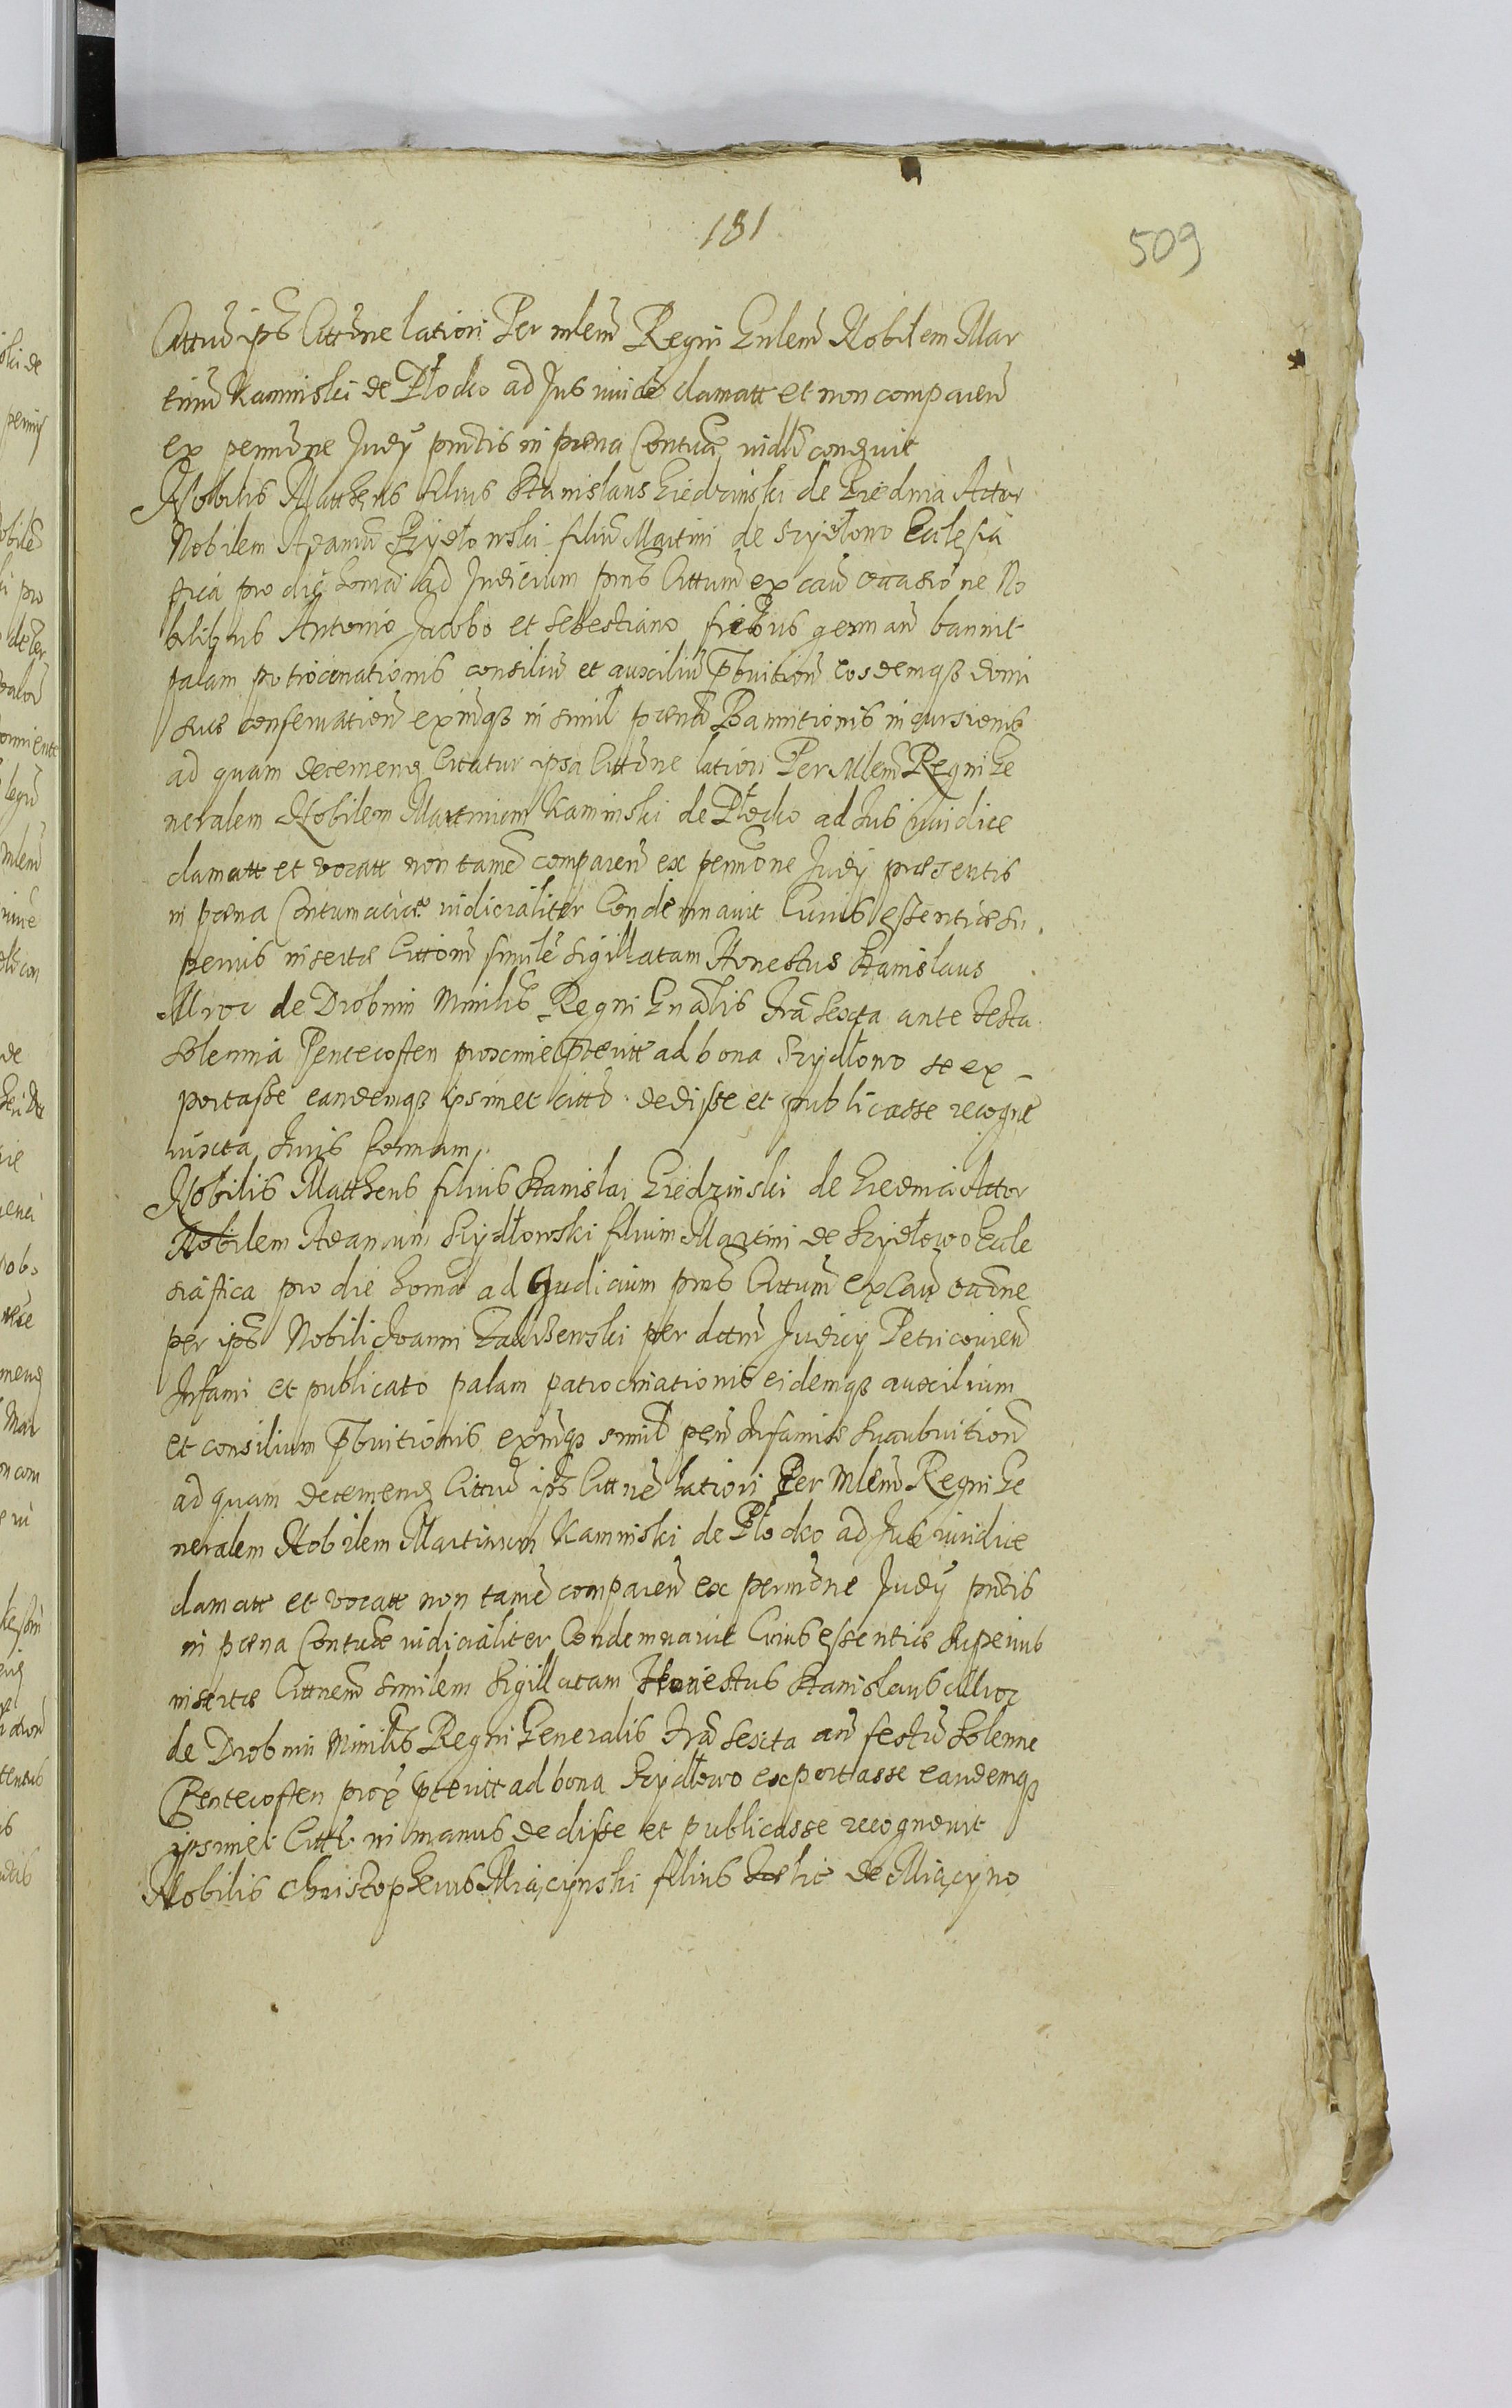 181
509
Citatũ ips Cittõne latiori Per mlem Regni Gnlem Nobilem Mar
tinũ Kaminski de Płocko ad Jus iuridẽ clamatt et non comparen
ex permne Judy pntis in pæna Contuã iudlr condnvit
Nobilis Mattheus filius Stanislaus Giedzinski de Giednia Actor
Nobilem Adamũ Szydłowski filiũ Martini de Szydłowo Ecclesia
stica pro die hodierna ad Judicium pns Cittatum ex cau occasione No
bilibus Antonio Jacobo et Sebestiano fribus german bannit
palam potrocinationis consiliũ et auxiliũ pbuition eosdemqȝ domi
suæ conservation exindqȝ in simil pænã Bannitionis incursionis
ad quam decernend citatur ipsa Cittõne latiori Per Mlem Regni Ge
neralem Nobilem Martinum Kaminski de Płocko ad Jus iuridice
clamatt et vocatt non tamẽ comparen ex permõne Judy præsentis
in pæna Contumaciæ iudicialiter Condemnavit Cuius essentiæ su
perius insertæ Cittõm similẽ sigillatam Honestus Stanislaus
Mroz de Drobnin Minilis Regni Gnalis fria sexta ante festa
solemnia Pentecosten proxime pteritt ad bona Szydłowo se ex-
portasse eandemqȝ ipsimet citto dedisse et publicasse recogñ
iuxta Juris formam
Nobilis Mattheus filius Stanislai Giedzinski de Giednia Actor
Nobilem Adamum Szydłowski filium Martini de Szydłowo Eccle
siastica pro die homa ad Judicium pns Cittatum ex cau occone
per ips Nobili Joanni per dectm Judicy Petricovien
Infami et publicato palam patrocinationis eidemqȝ auxilium
et consilium pbuitionis exindqȝ simil pen Infamiæ Succubuition
ad quam decernend Cittatũ ips Cittne latiori Per Mlem Regni Ge
neralem Nobilem Martinum Kaminski de Płocko ad Jus iuridice
clamatt et vocatt non tamẽ comparen ex permõne Judy pntis
in pæna Contuaæ iudicialiter Condemnavit Cuius essentiæ superius
insertæ Cittnem similem Sigillatam Honestus Stanislaus Mroz
de Drobnin Minilis Regni Generalis fria sexta an festũ solenne
Pentecosten prox pteritt ad bona Szydłowo exportasse eandemqȝ
ipsimet Citto in manus dedisse et publicasse recognovit
Nobilis Christopherus Miączynski filius de Miączyno